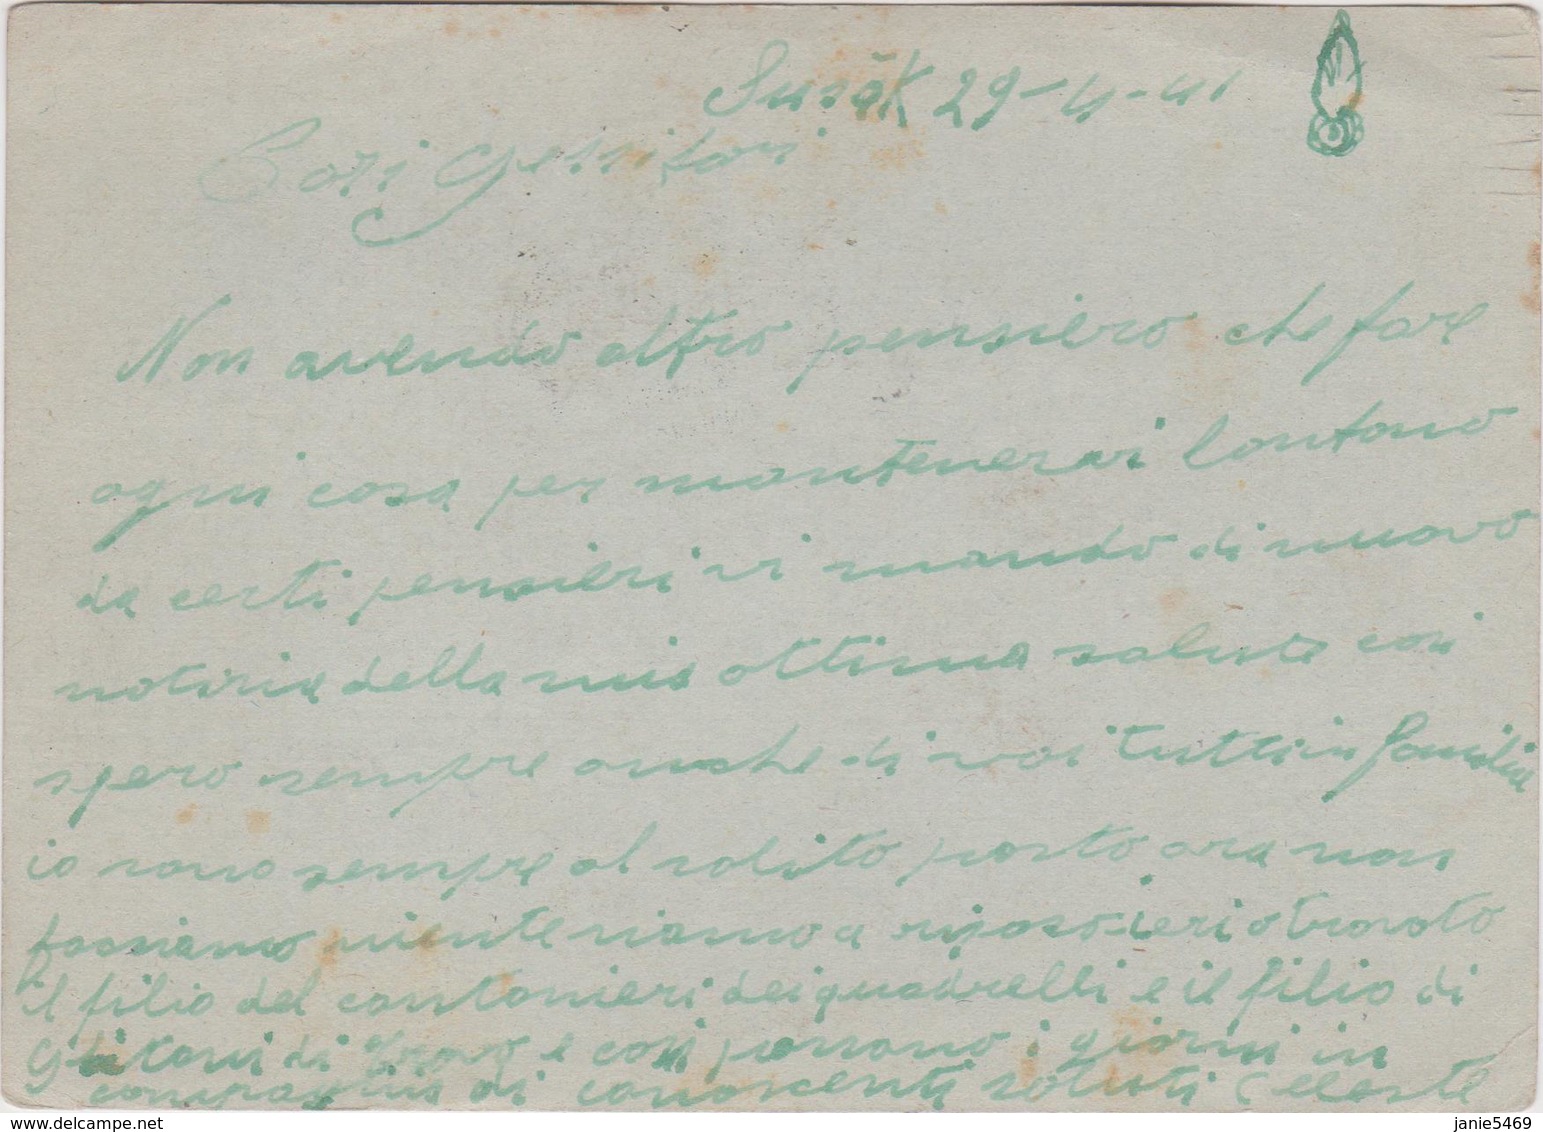 Susǎk 29-4-41
Cari Genitori
Non avendo altro pensiero che fare
ogni cosa per mantenervi lontano
da certi pensieri vi mando di nuovo
notizia della mia ottima salute cosi
spero sempre anche di voi tutti in familia
io sono sempre al solito posto ora non
facciamo niente siamo a riposo-ieri o trovato
il filio del cantonieri dei quadrelli e il filio di
di e cosi passano i giorni in
compagnia di conoscenti saluti Celeste
janie5469